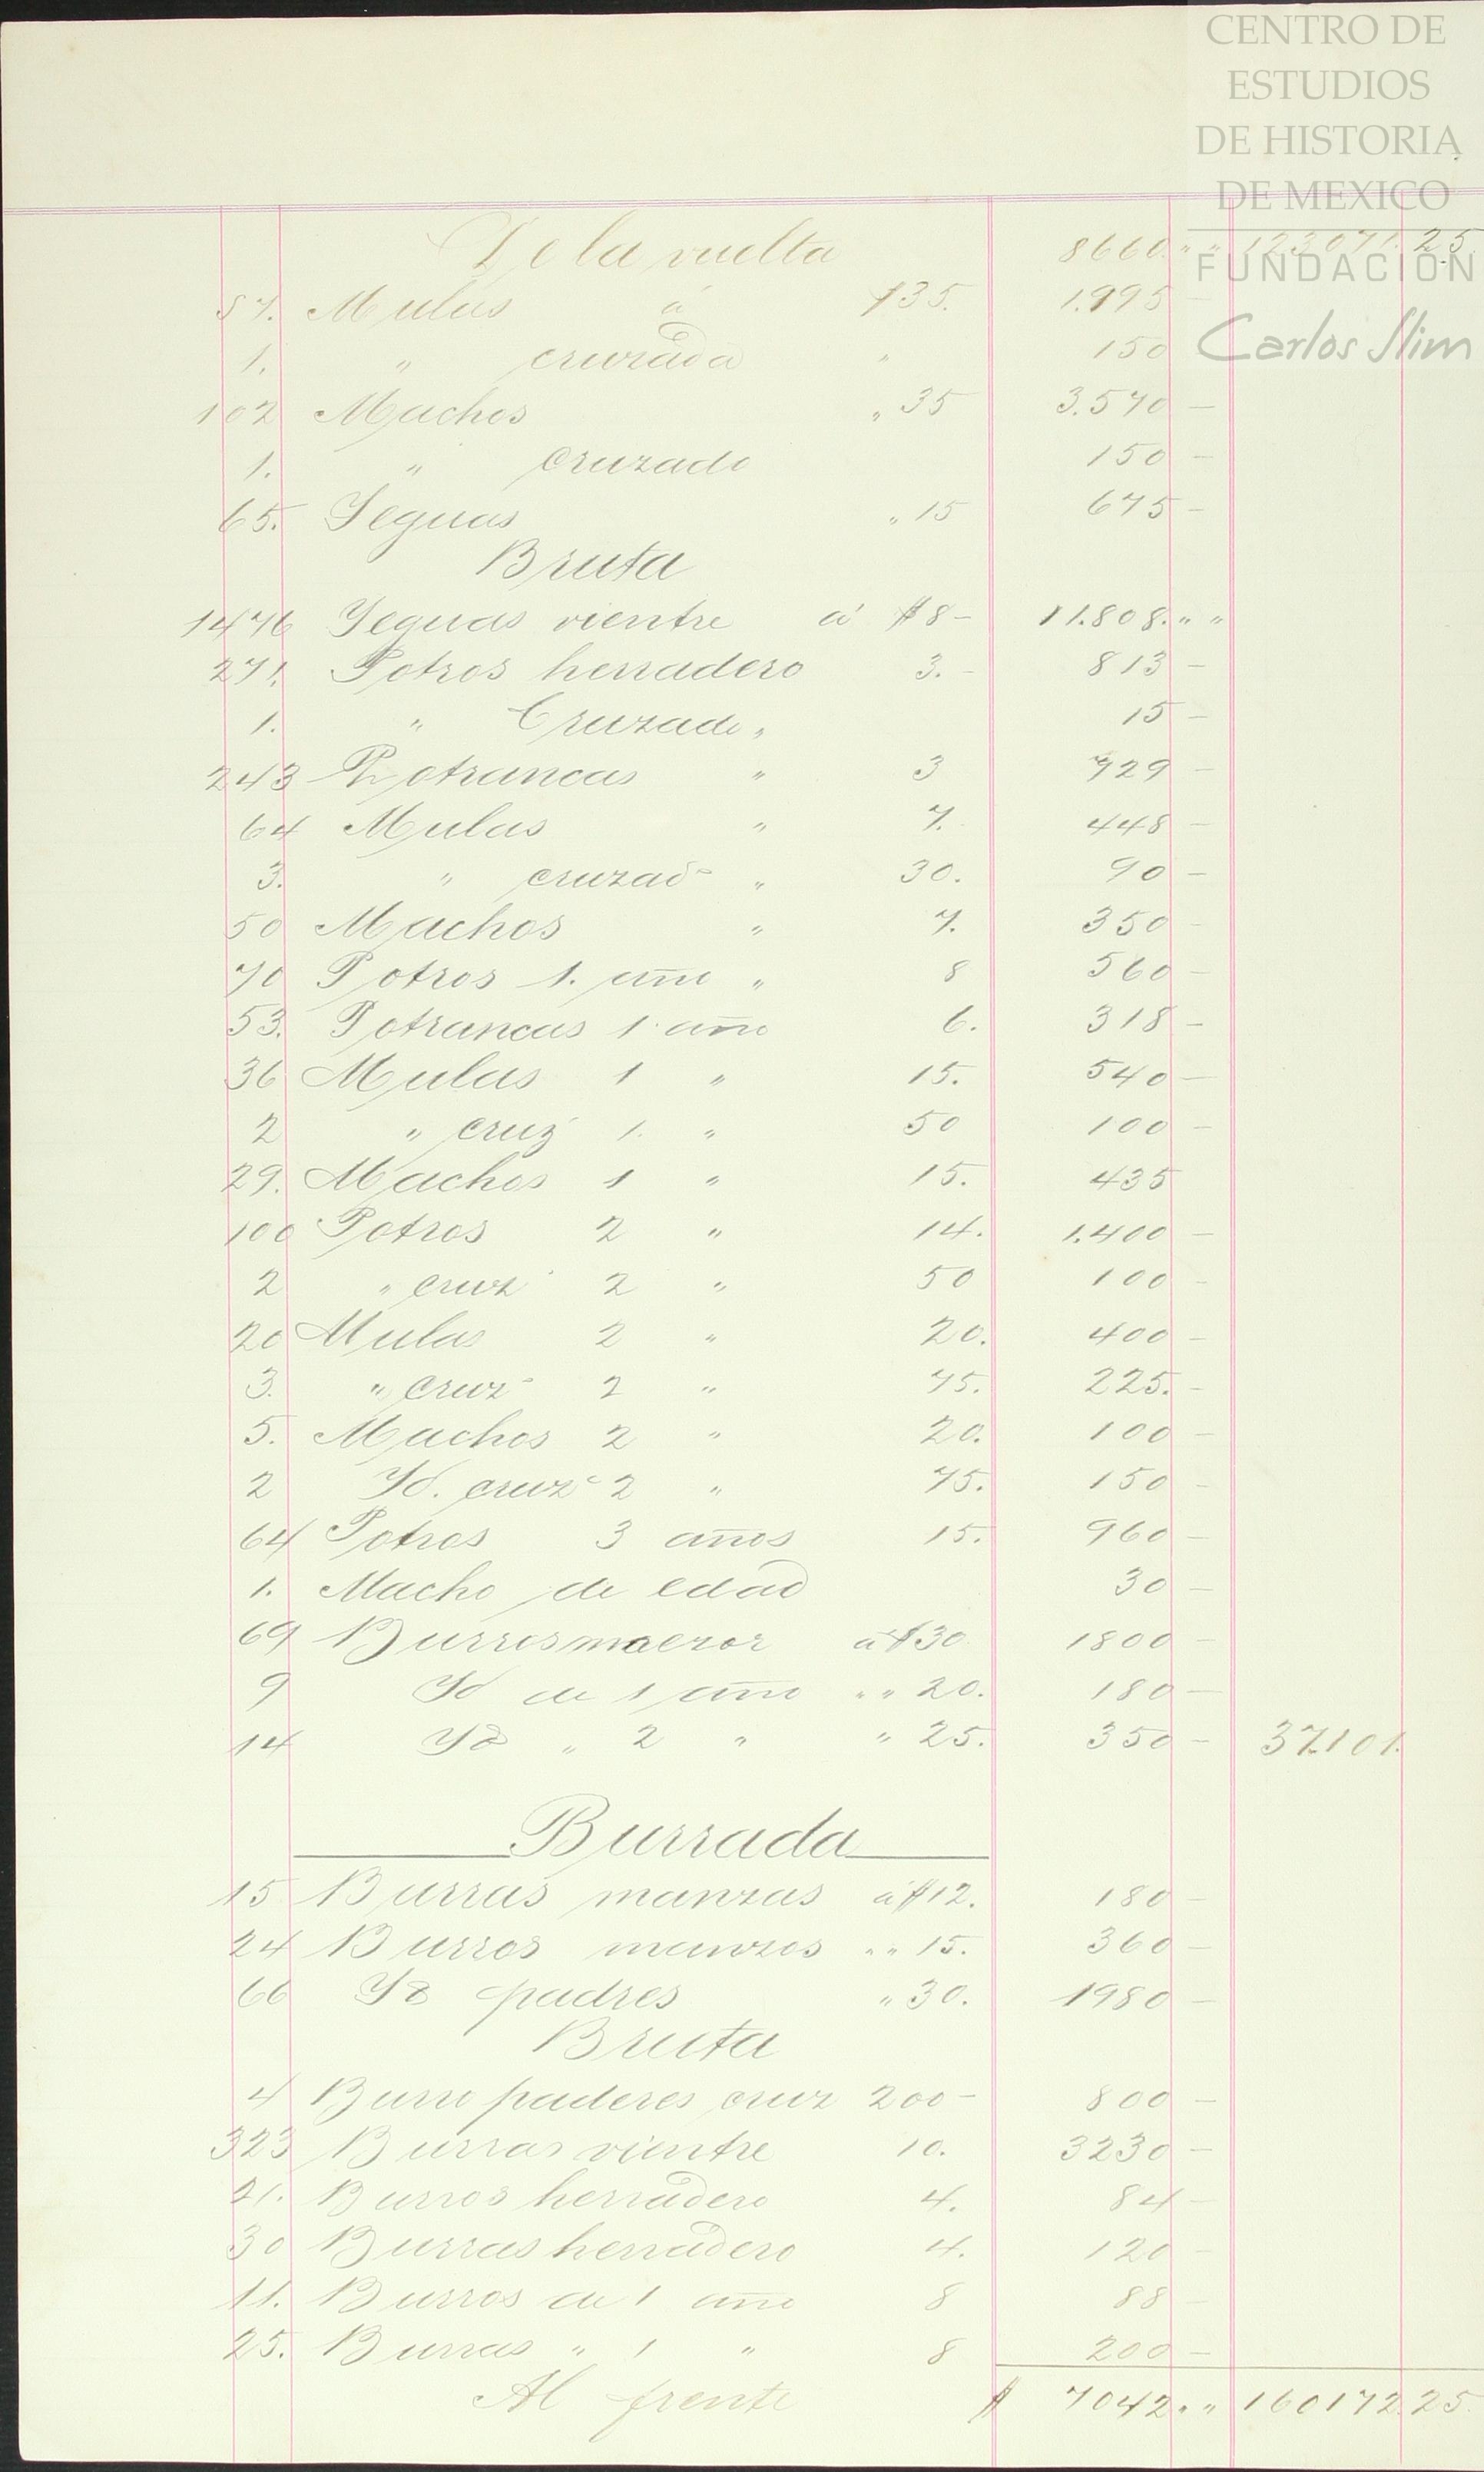 CENTRO DE
ESTUDIOS
DE HISTORIA
DE MEXICO
FUNDACION
Carlos Slim
De la vuelta 8660 " " 123071.25
57. Mulas á $35. 1.995 -
1. " cruzada " 150
102 Machos " 35 3.570 -
1. " cruzado 150 -
65. Yeguas " 15 675 -
Bruta
1476 Yeguas vientre á $8 - 11.808. " "
271. Potros herradero 3. - 813 -
1. " Cruzado " 15 -
243 Potrancas " 3 729 -
64 Mulas " 7. 448 -
3. " cruzads " 30. 90 -
50 Machos " 7. 350 -
70 Potros 1. año " 8 560 -
53. Potrancas 1 año 6. 318 -
36 Mulas 1 " 15. 540 -
2 " cruz 1. " 50 100 -
29. Machos 1 " 15. 435
100 Potros 2 " 14. 1.400 -
2 " cruz 2 " 50 100 -
20 Mulas 2 " 20. 400 -
3. " cruz 2 " 75. 225. -
5. Machos 2 " 20. 100 -
2 Yd. cruz 2 " 75. 150 -
64 Potros 3 años 15. 960 -
1. Macho de edad 30 -
69 Burros á $30 1800 -
9 Yd de 1 año " " 20. 180 -
14 Yd " 2 " " 25. 350 - 37.101.
Burrada
15 Burras manzas á $12. 180 -
24 Burros manzos " " 15. 360 -
66 Yd padres " 30. 1980 -
Bruta
4 Burro paderes cruz 200 - 800 -
323 Burras vientre 10. 3230 -
21. Burros herradero 4. 84 -
30 Burras herradero 4. 120 -
11. Burros de 1 año 8 88 -
25. Burras " 1 " 8 200 -
Al frente $ 7042 " " 160172.25